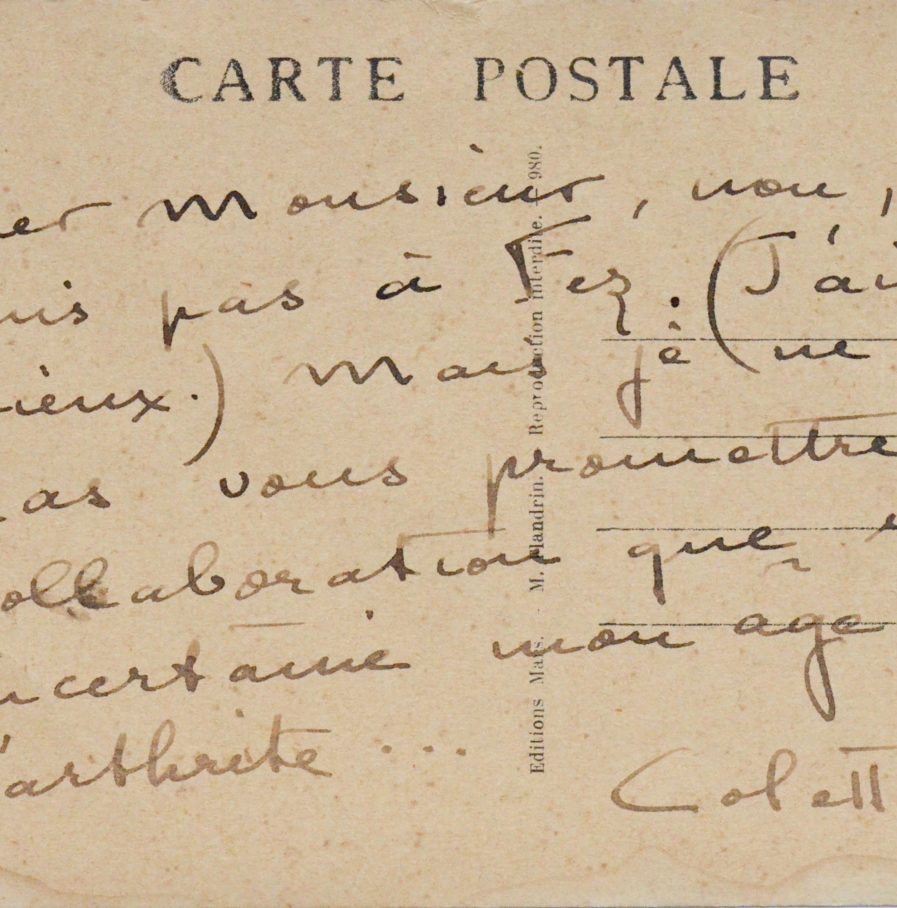 CARTE POSTALE
er Monsieur, non,
uis pas à Fez. (J'ai
ieux.) Mais je ne
as vous promettre
ollaboration que
ncertaine mon âge
'arthrite ...
Colett
Editions Mars. - M. Flandrin. Reproduction interdite. 980.